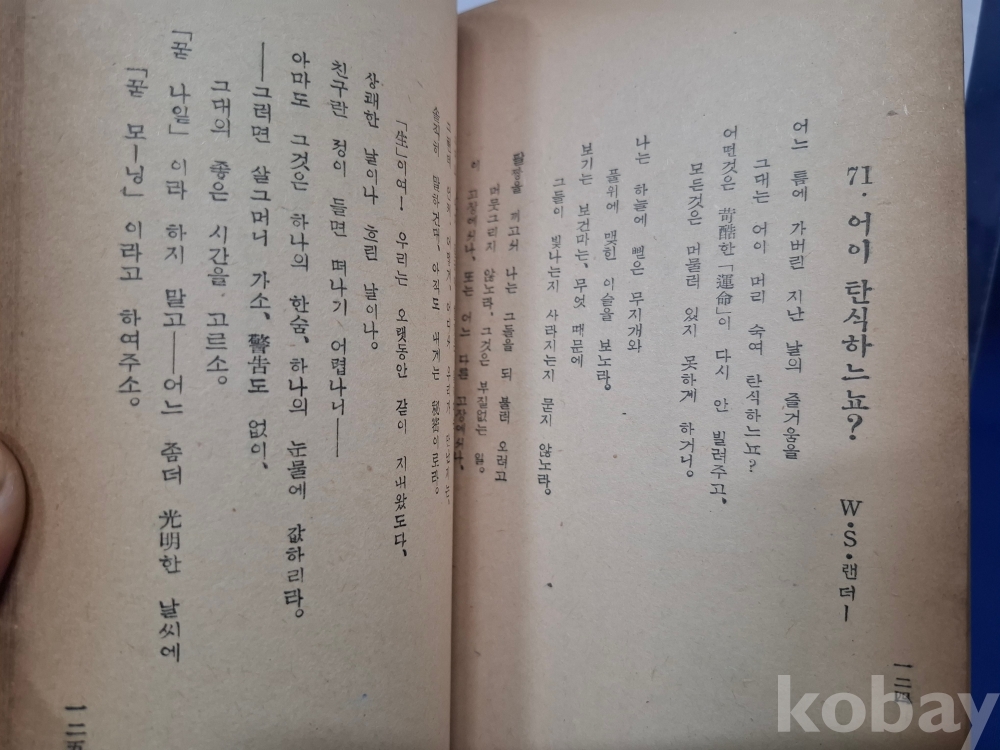 71·어이 탄식하느뇨?
W·S·랜더ー
어느 틈에 가버린 지난 날의 즐거움을
그대는 어이 머리 숙여 탄식하느뇨?
어떤것은 苛酷한「運命」이 다시 안 빌려주고、
모든것은 머물러 있지 못하게 하거니。
나는 하늘에 뻗은 무지개와
풀위에 맺힌 이슬을 보노라。
보기는 보건마는、무엇 때문에
그들이 빛나는지 사라지는지 묻지 않노라。
팔짱을 끼고서 나는 그들을 되 불러 오려고
머뭇그리지 않노라、그것은 부질없는 일。
이 고장에서나、또는 어느 다른 고장에서나、
一二四
아직도 내게는
「生」이여! 우리는 오랫동안 같이 지내왔도다、
상쾌한 날이나 흐린 날이나。
친구란 정이 들면 떠나기 어렵나니——
아마도 그것은 하나의 한숨、하나의 눈물에 값하리라。
——그러면 살그머니 가소、警告도 없이、
그대의 좋은 시간을 고르소。
「꿑 나일」이라 하지 말고——어느 좀더 光明한 날씨에
「꿑 모ー닝」이라고 하여주소。
一二五
kobay